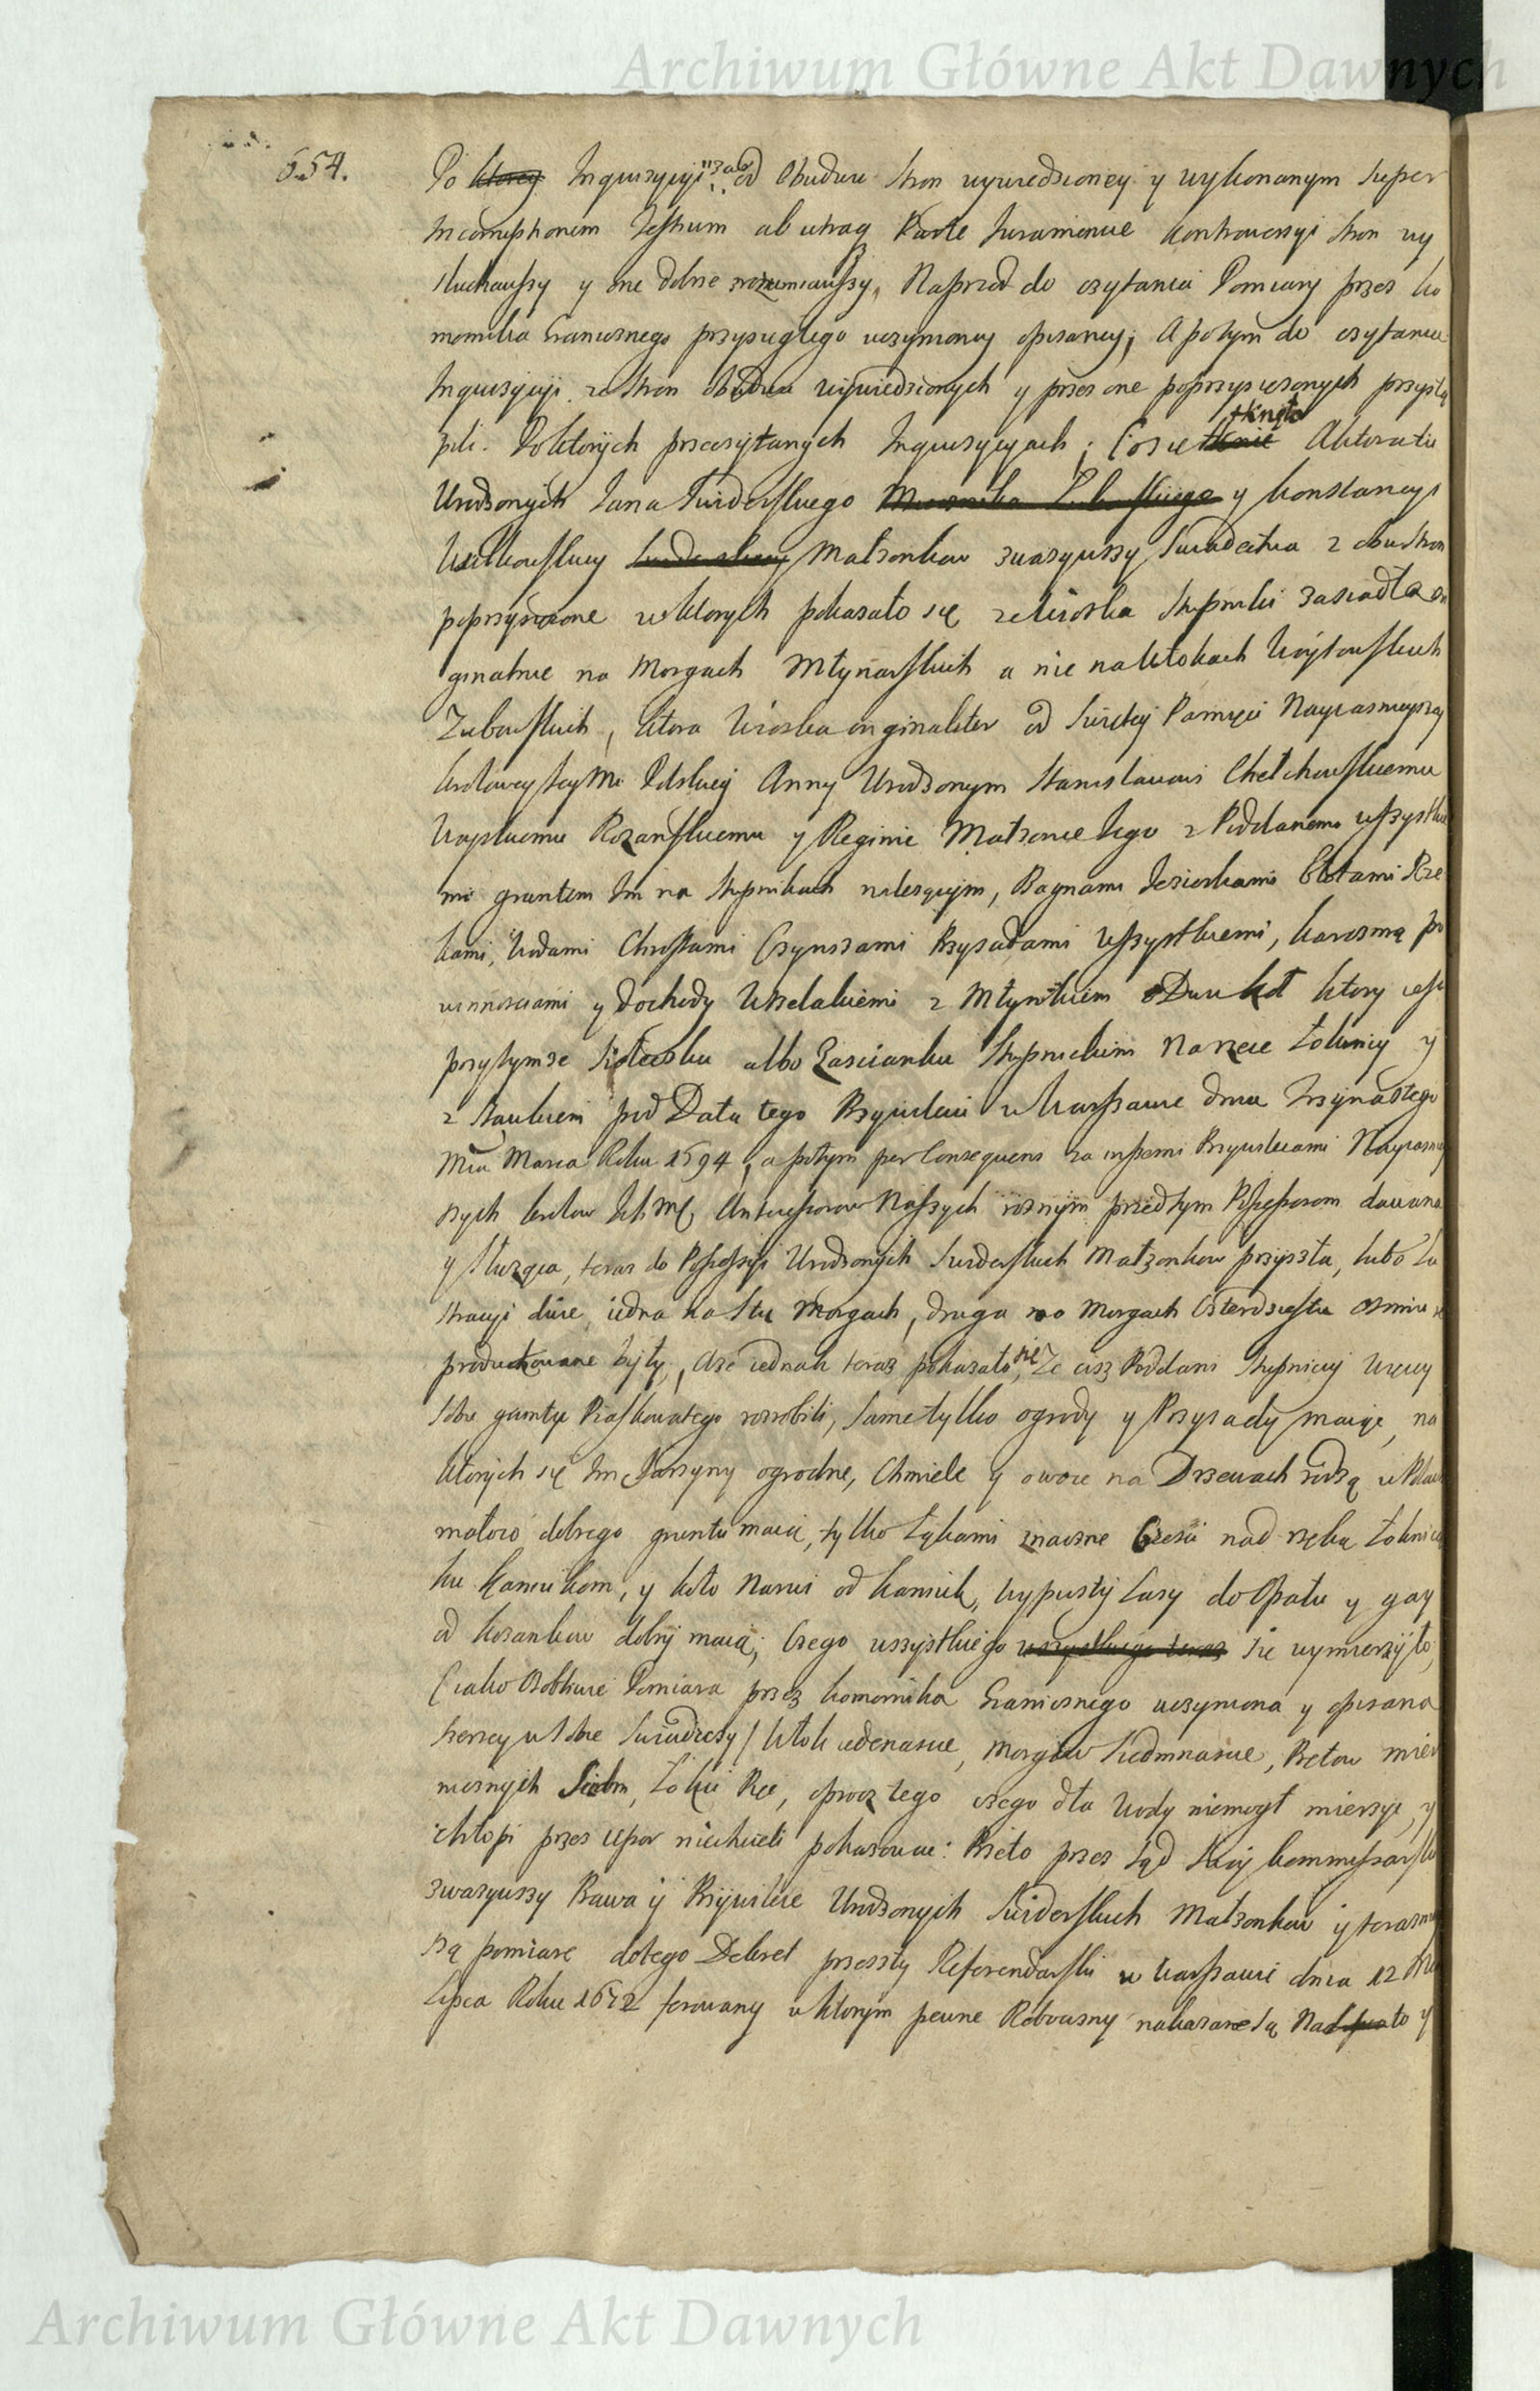 Archiwum Główne Akt Dawnych
654.
Po ktorey Inquisycyi od Obudwu stron wywiedzioney y wykonanym super
incorruptionem Testium ab utraq Parte Iuramencie kontrowersyi stron wy
słuchawszy y one dobrze zrozumiawszy, Naprzod do czytania Pomiary przez Ko
mornika Granicznego przysięgłego uczynioney opisaney; A potym do czytania
Inquisycyi ze stron obudwu wywiedzionych y przez one poprzysiężonych przystą
pili. Po ktorych przeczytanych Inquisycyach; Co się tknie tknęło Aktoratu
Urodzonych Jana Swiderskiego y Konstancyi
Wilkowskiey Małzonkow zwazywszy Swiadectwa z obu stron
poprzysiężone w ktorych pokazało się ze Wioska Stepniki zasiadła ori
ginalnie na Morgach Młynarskich a nie na Włokach Woytowskich
Zubowskich, ktora Wioska originaliter od Swiętey Pamięci Nayiasnieyszey
Krolowey Iey Mci Polskiey Anny Urodzonym Stanisławowi Chełchowskiemu
Woyskiemu Rozanskiemu y Reginie Małzonce Iego z Poddanemi wszystkie
mi gruntem Im na Stepnikach nalezącym, Bagnami Jeziorkami Błotami Rze
kami, Wodami Chrostami Czynszami Przysadami wszystkiemi, karczmą po
winnosciami y dochody Wszelakiemi z Młynikiem o Dwu Koł ktory iest
przytymze Siołecku albo Zascianku Stepnickim Na rzece Łoknicy y
z Stawkiem pod Datą tego Przywileiu w Warszawie dnia Trzynastego
Mca Marca Roku 1594, a potym per Consequens za inszemi Przywileiami Nayiasniey
szych Krolow Ich Mć, Antecessorow Naszych roznym przedtym Possessorom dawana
y słuząca, teraz do Possessyi Urodzonych Swiderskich Małzonkow przyszła, lubo Lu
stracyi dwie, iedna na Stu Morgach, druga na Morgach Czterdziestu osmiu
produkowane były, Aze iednak teraz pokazało się, Ze ciz Poddani Stepniccy więcey
sobie gruntu Piaskowatego rozrobili, same tylko ogrody y Przysady maiąc, na
ktorych się Im Jarzyny ogrodne, Chmiele y owoce na Drzewach rodzą w Polach
mało co dobrego gruntu maią, tylko Łąkami znaczne Części nad rzeką Łoknicą
ku Kamienkom, y koło Narwi od Kamienk, wypusty Lasy do Opału y gay
od Kozankow dobry maią; Czego wszystkiego wszystkiego teraz się wymierzyło,
(iako Osobliwie Pomiara przez Komornika Granicznego uczyniona y opisana
szerzey w sobie Swiadczy) Włok iedenascie, Morgow Siedmnascie, Prętow mier
niczych Siedm, Łokci Pięć, oprocz tego czego dla Wody niemogł mierzyć, y
chłopi przez upor niechcieli pokazowac: Przeto przez Sąd swoy Kommissarski
zwazywszy Prawa y Przywileie Urodzonych Swiderskich Małzonkow y teraznie
szą pomiarę do tego Dekret przeszły Referendarski w Warszawie dnia 12 Mca
Lipca Roku 1672 ferowany w ktorym pewne Robocizny nakazane są Nad to y
Archiwum Główne Akt Dawnych